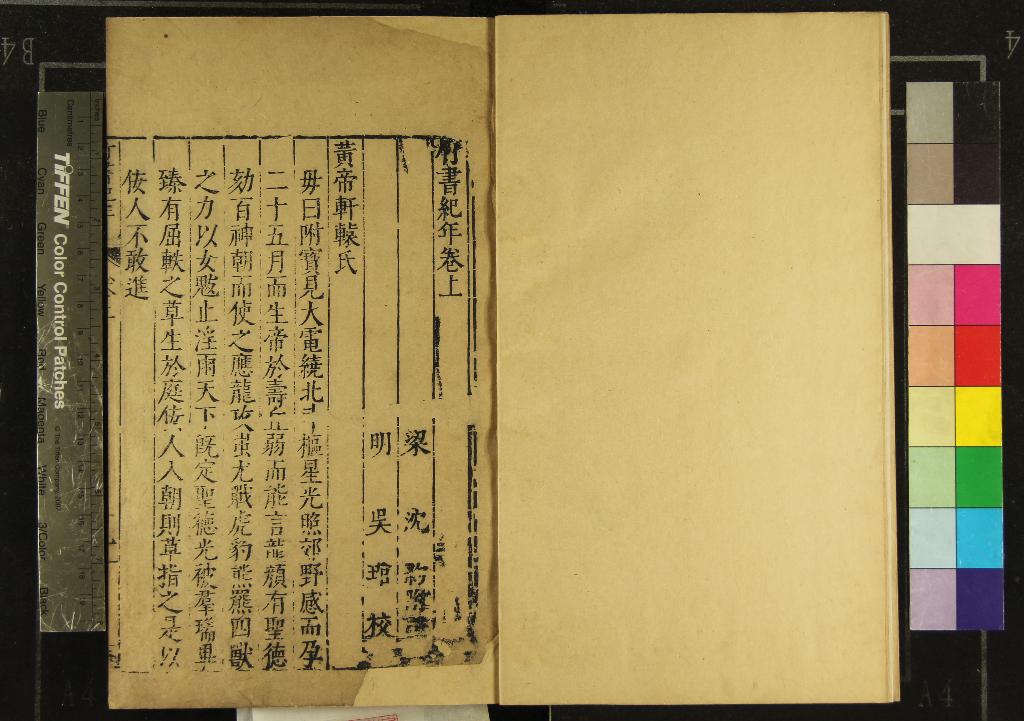 竹書紀年卷上
梁 沈 約 附 註
明 吳 琯 校
黃帝軒轅氏
毋曰附寶見大電繞北斗樞星光照郊野感而孕
二十五月而生帝於壽丘弱而能言龍顏有聖德
劾百神朝而使之應龍攻蚩尤戰虎豹熊羆四獸
之力以女魃止淫雨天下既定聖德光被羣瑞畢
臻有屈軼之草生於庭佞人入朝則草指之是以
佞人不敢進
TIFFEN Color Control Patches
Centimetres
Blue
Cyan
Green
Yellow
Red
Magenta
White
3/Color
Black
B4
A4
A4